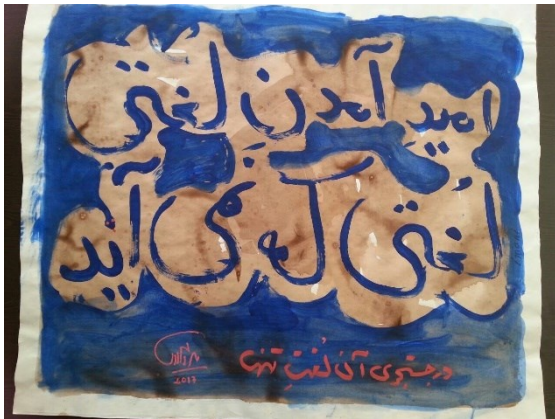 امیدِ آمدن لغتی
لُغتی که نمی آید
در جستجوی آن لُغتِ تنها
2017